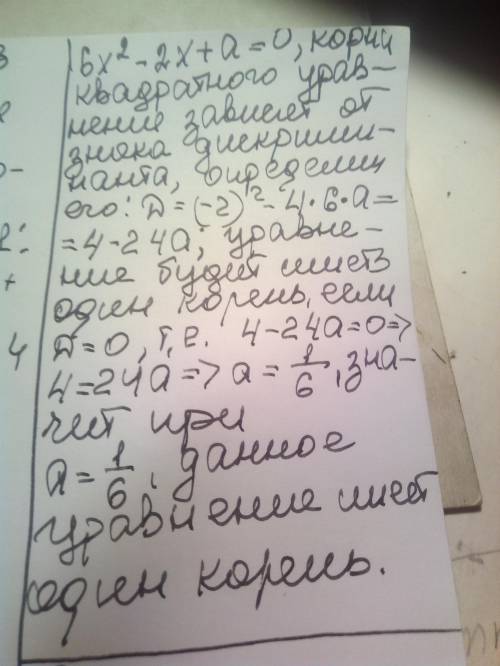 6x² - 2x + a = 0, корни
квадратного урав-
нение зависят от
знака дискрими-
нанта, определим
его: D = (-2)² - 4·6·a =
= 4 - 24a; уравне-
ние будет иметь
один корень, если
D = 0, т.е. 4 - 24a = 0 =>
4 = 24a => a = 1/6, зна-
чит при
a = 1/6, данное
уравнение имеет
один корень.